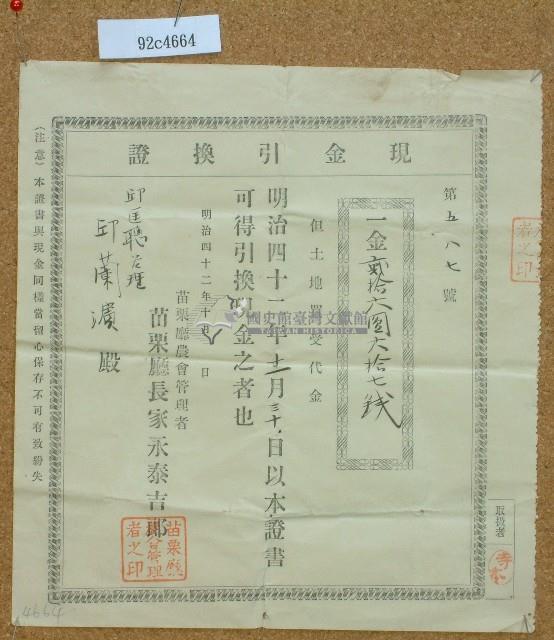 92c4664
現金引換證
第五八七號
一金貳拾六圓六拾七錢
但土地買受代金
明治四十二年十二月三十日以本證書
可得引換現金之者也
明治四十二年十月八日
苗栗廳農會管理者
苗栗廳長家永泰吉郎
苗栗廳農會管理者之印
邱匡聰管理
邱蘭濱殿
(注意)本證書與現金同樣當留心保存不可有致紛失
取扱者
者之印
國史館臺灣文獻館
TAIWAN HISTORICA
4664